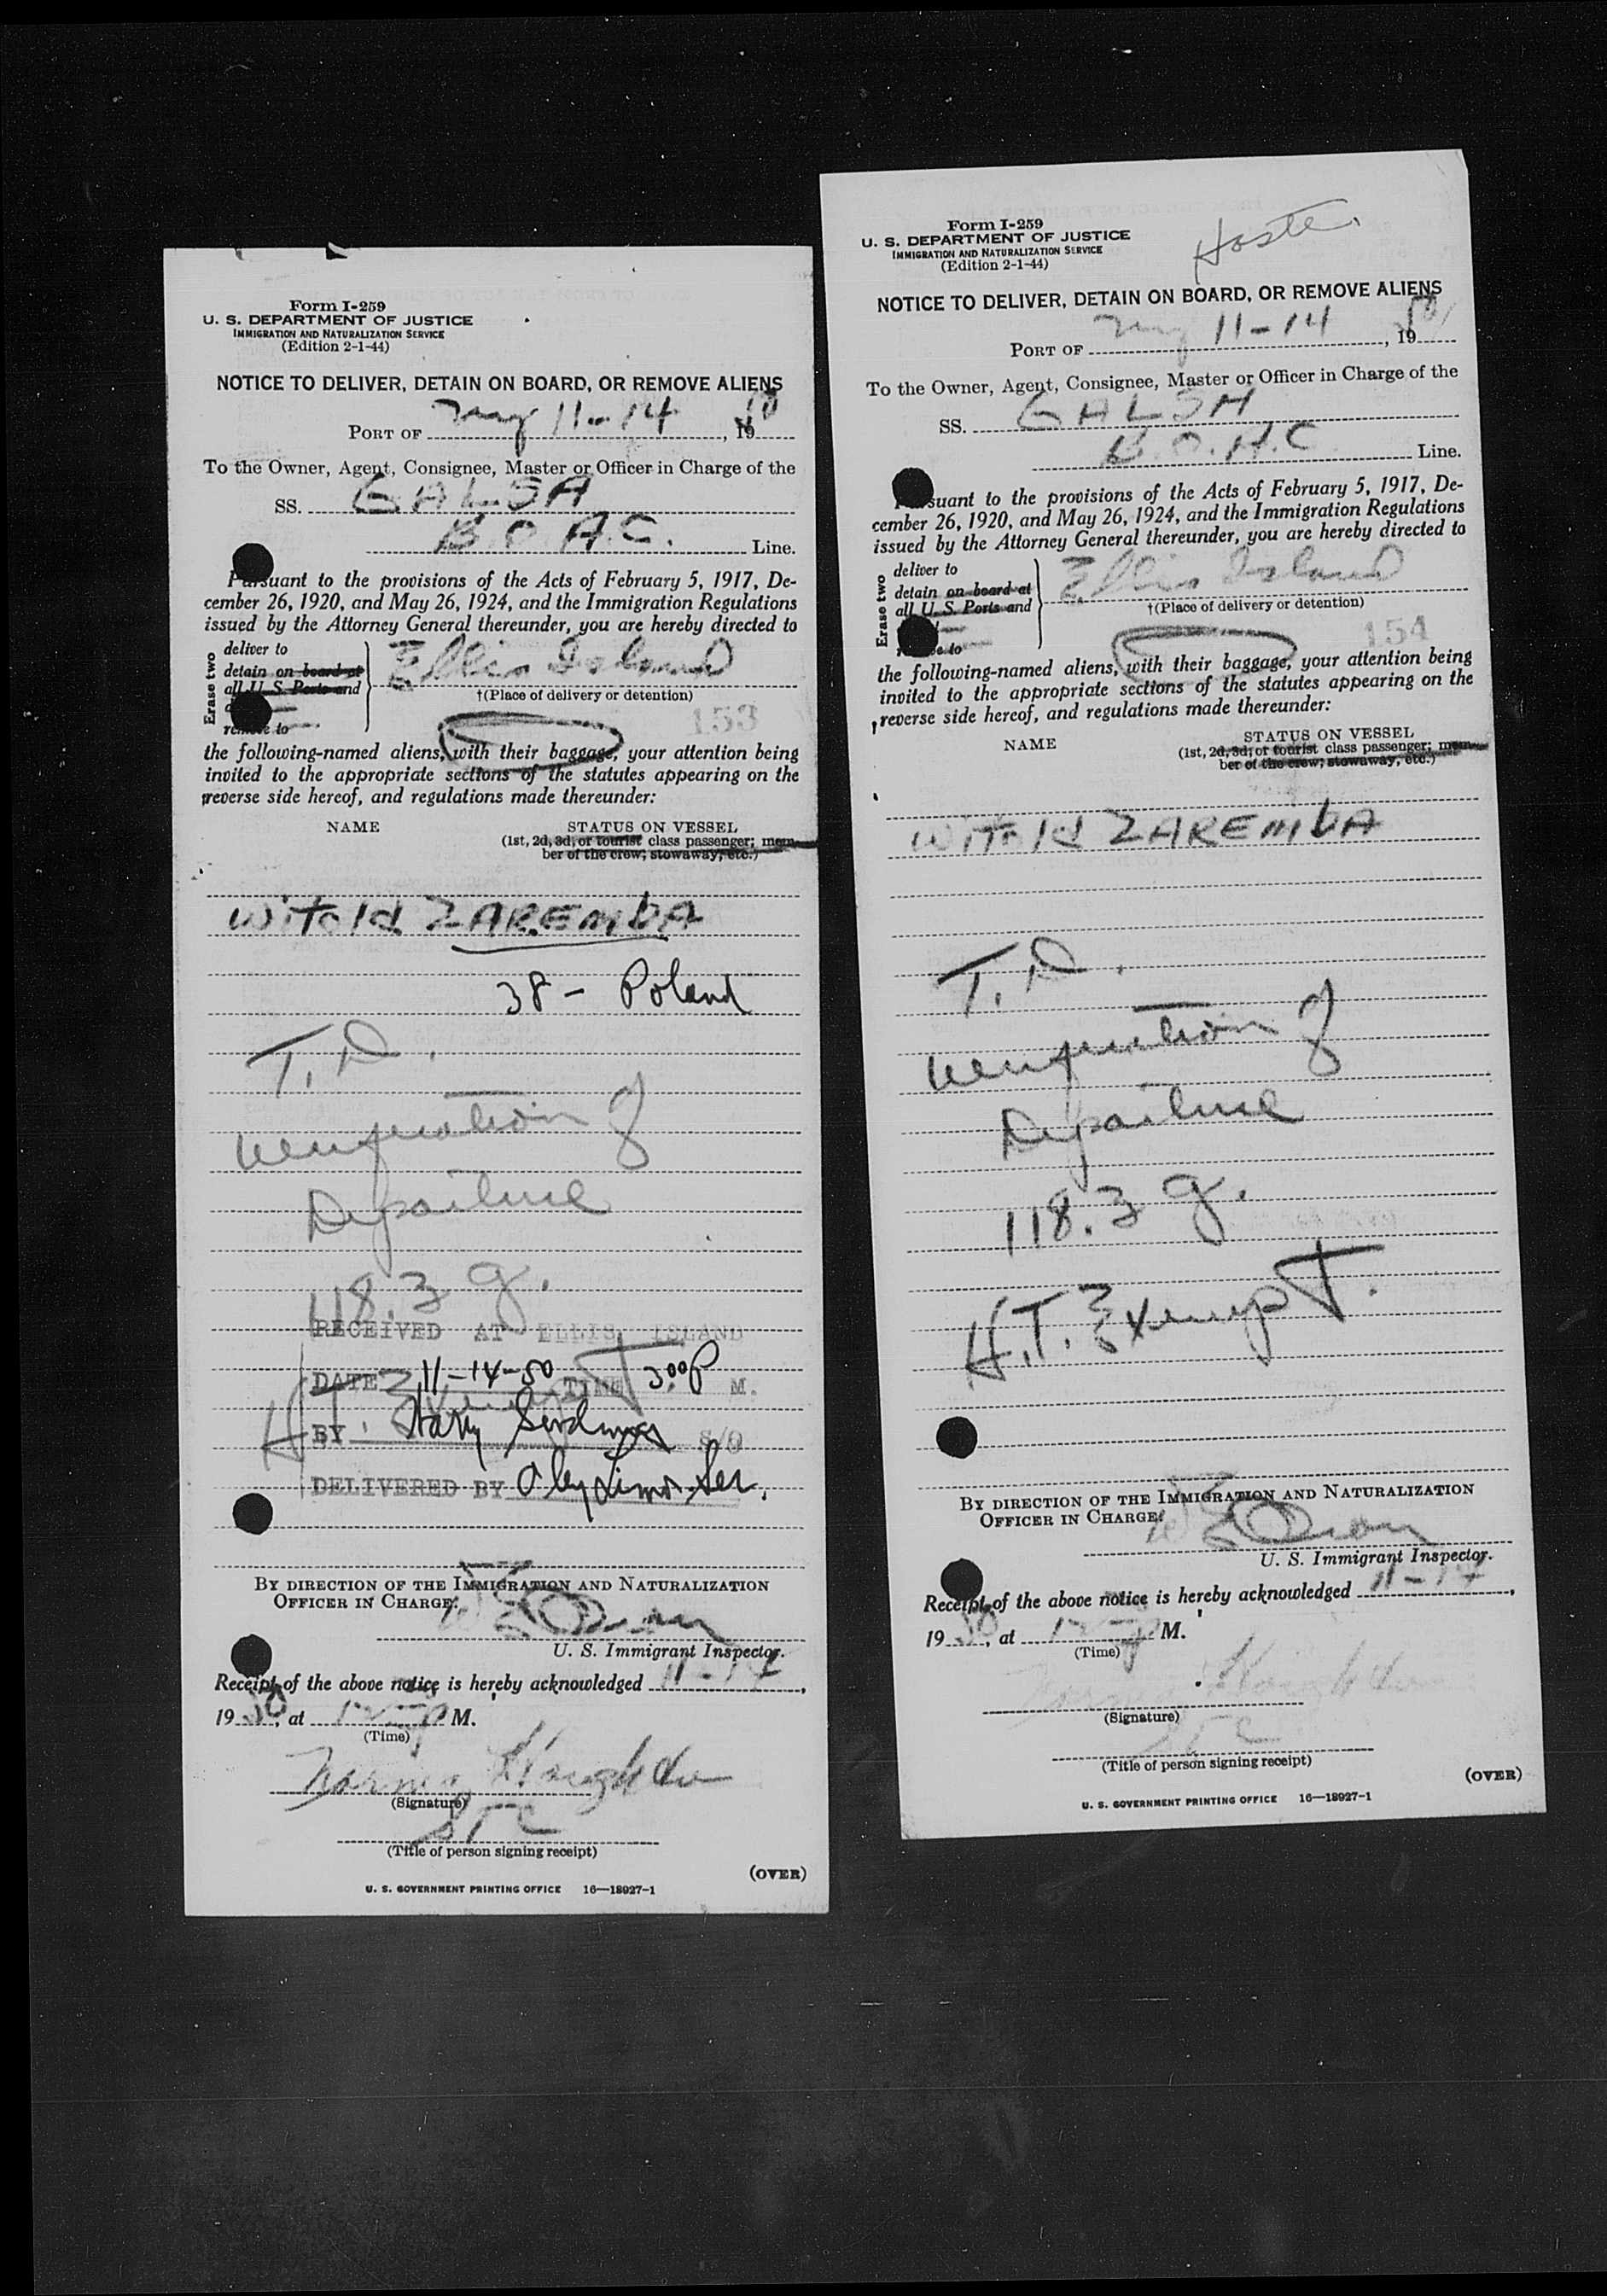 Form I-259
U. S. DEPARTMENT OF JUSTICE
IMMIGRATION AND NATURALIZATION SERVICE
(Edition 2-1-44)
NOTICE TO DELIVER, DETAIN ON BOARD, OR REMOVE ALIENS
PORT OF NY 11-14, 1950
To the Owner, Agent, Consignee, Master or Officer in Charge of the
SS. GALSA
B.O.A.C. Line.
Pursuant to the provisions of the Acts of February 5, 1917, De-
cember 26, 1920, and May 26, 1924, and the Immigration Regulations
issued by the Attorney General thereunder, you are hereby directed to
Erase two
deliver to
detain on board at
all U. S. Ports and
remove to
Ellis Island
†(Place of delivery or detention)
153
the following-named aliens, with their baggage, your attention being
invited to the appropriate sections of the statutes appearing on the
reverse side hereof, and regulations made thereunder:
NAME STATUS ON VESSEL
(1st, 2d, 3d, or tourist class passenger; mem-
ber of the crew; stowaway, etc.)
WITOLD ZAREMBA
38 - Poland
T.D.
Verification of
Departure
118.3 g.
RECEIVED AT ELLIS ISLAND
DATE 11-14-50 TIME 3:00 P M.
H.T. Exempt
BY Harry S/O
DELIVERED BY Limo. Ser.
BY DIRECTION OF THE IMMIGRATION AND NATURALIZATION
OFFICER IN CHARGE:
U. S. Immigrant Inspector.
Receipt of the above notice is hereby acknowledged 11-14,
1950, at M.
(Time)
(Signature)
(Title of person signing receipt)
(OVER)
U. S. GOVERNMENT PRINTING OFFICE 16—18927-1
Form I-259
U. S. DEPARTMENT OF JUSTICE
IMMIGRATION AND NATURALIZATION SERVICE
(Edition 2-1-44)
NOTICE TO DELIVER, DETAIN ON BOARD, OR REMOVE ALIENS
PORT OF NY 11-14, 1950
To the Owner, Agent, Consignee, Master or Officer in Charge of the
SS. GALSA
B.O.A.C. Line.
Pursuant to the provisions of the Acts of February 5, 1917, De-
cember 26, 1920, and May 26, 1924, and the Immigration Regulations
issued by the Attorney General thereunder, you are hereby directed to
Erase two
deliver to
detain on board at
all U. S. Ports and
remove to
Ellis Island
†(Place of delivery or detention)
154
the following-named aliens, with their baggage, your attention being
invited to the appropriate sections of the statutes appearing on the
reverse side hereof, and regulations made thereunder:
NAME STATUS ON VESSEL
(1st, 2d, 3d, or tourist class passenger; mem-
ber of the crew; stowaway, etc.)
WITOLD ZAREMBA
T.D.
Verification of
Departure
118.3 g.
H.T. Exempt.
BY DIRECTION OF THE IMMIGRATION AND NATURALIZATION
OFFICER IN CHARGE:
U. S. Immigrant Inspector.
Receipt of the above notice is hereby acknowledged 11-14,
1950, at M.
(Time)
(Signature)
(Title of person signing receipt)
(OVER)
U. S. GOVERNMENT PRINTING OFFICE 16—18927-1